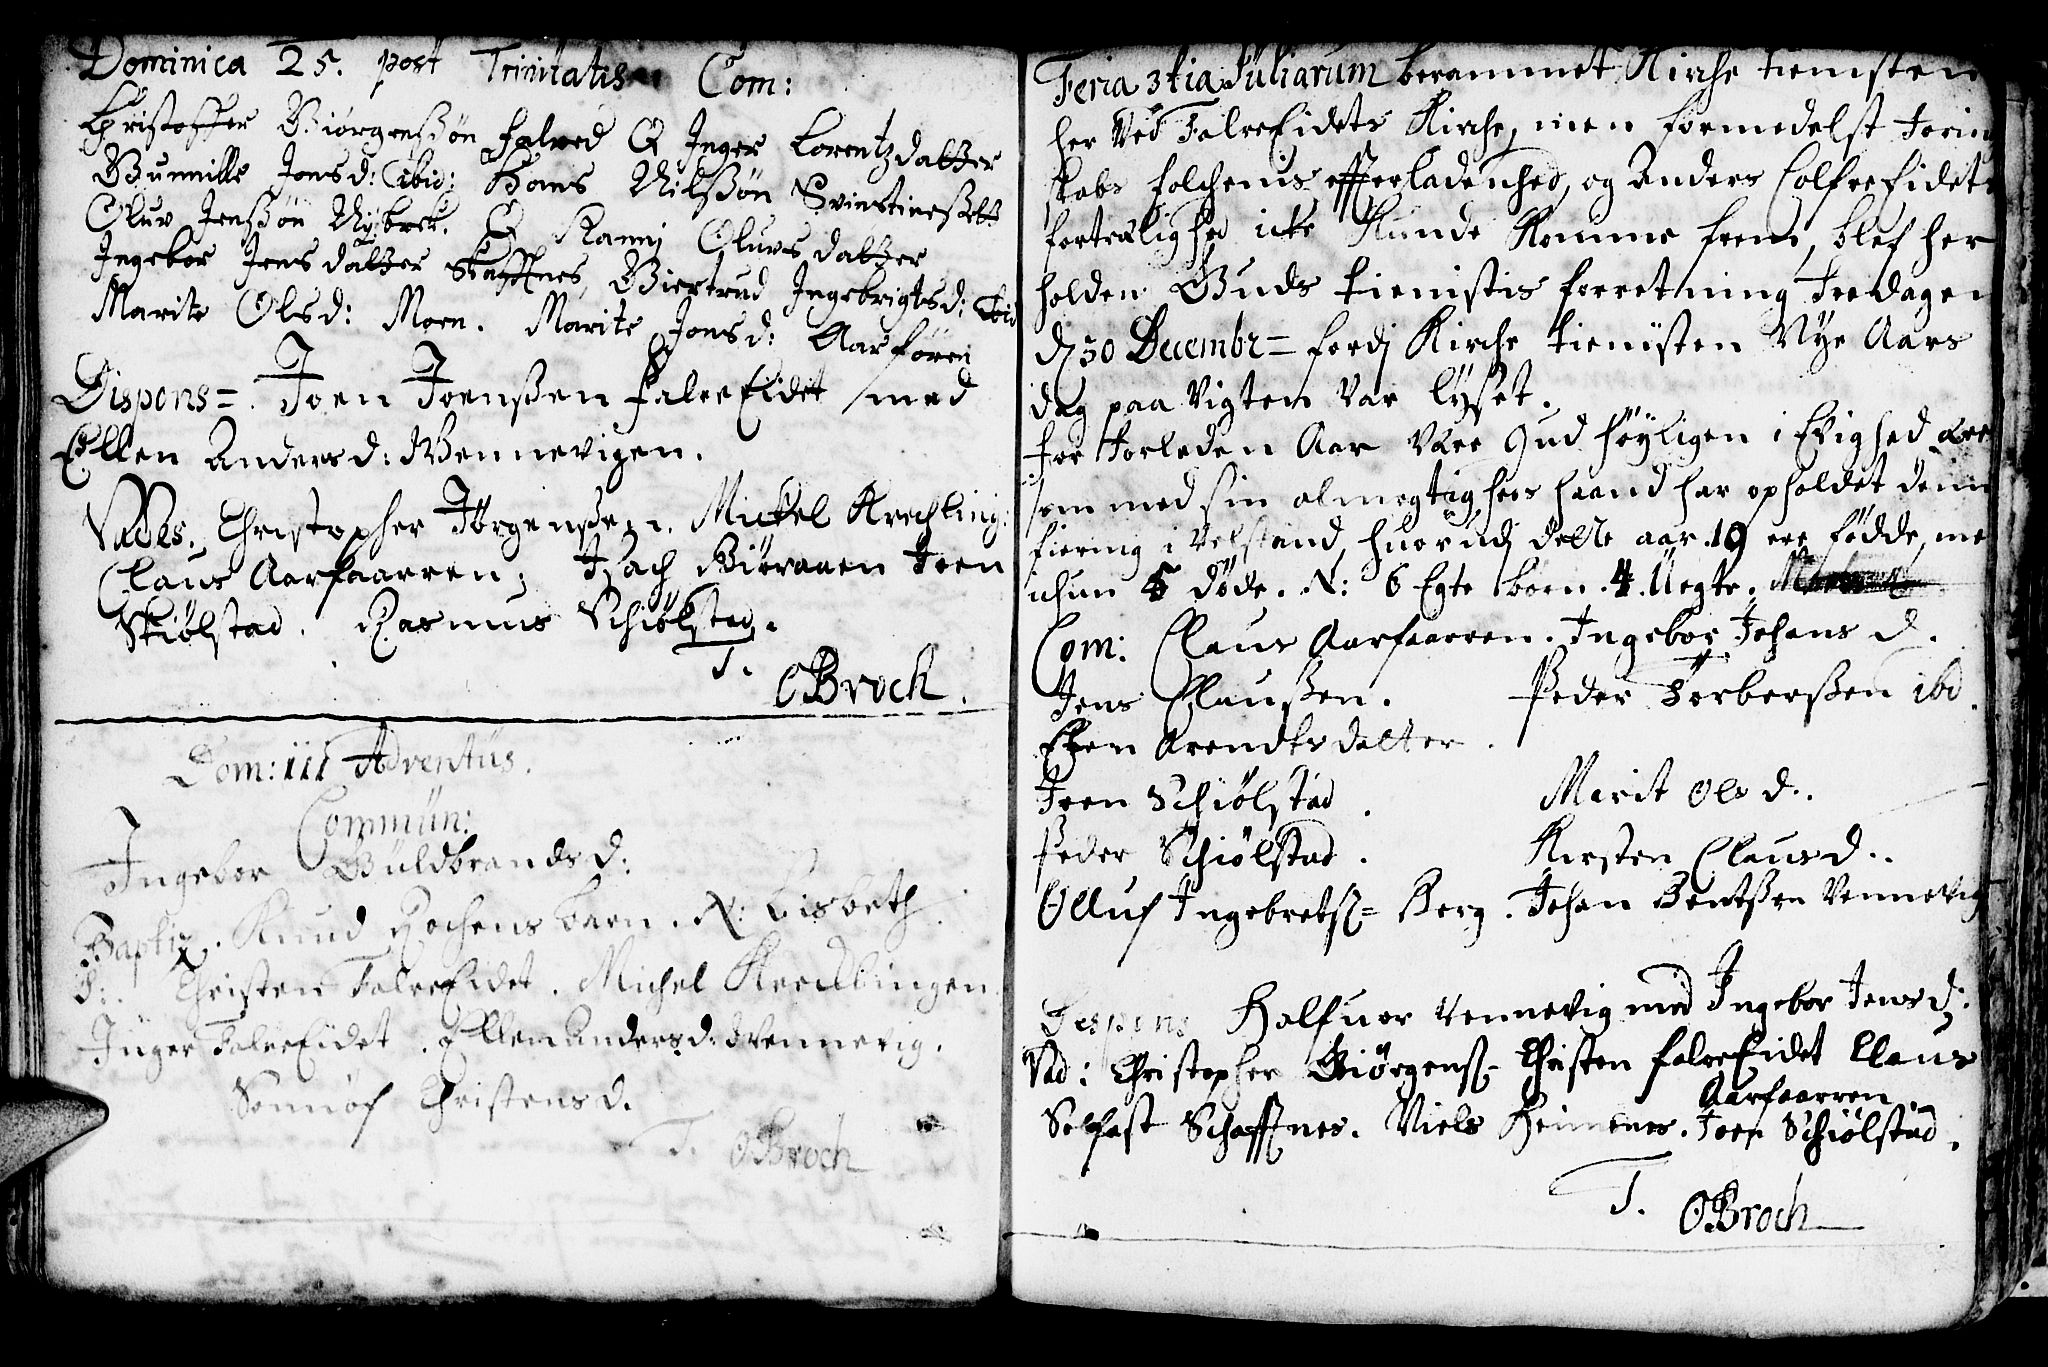 Dominica 25. post Trinitatis Com:
Christoffer Biörgenßön Falred & Inger Lorentzdatter
Gunnille Jonsd: ibid: Hans Nilßön Svinstineßet
Oluv Jenßön Nÿbrek. & Ranni Oluvsdatter
Ingebor Jensdatter Skaffnes, Giertrud Ingebrigtsd: ibid
Marite Olsd: Moen. Marite Jonsd: Aarföreń
Dispons=. Joen Joenßen FalreEidet med
Ellen Andersd: Wennevigen.
Vades. Christopher Jörgenße. Mickel Krechling:
Claus Aarfaarren; Isach Biöraaen Joen
Skiölstad. Rasmus Schiölstad.
T. OBroch.
Dom: iii Adventüs.
Commün:
Ingebor Güldbrandsd:
Baptiz. Knud Rochens barn. N: Lisbeth.
T:. Christen FalreEidet. Michel Krecklingen
Inger FalreEidet. Ellen Andersd: Wennevig.
Sennöf Christensd.
T. OBroch
Feria 3tia Juliarum berammet Kirche tiensten
her ved FalreEidets Kirche, men formedelst
skabs folchenis efferladenhed, og Anders ColfreEidets
fortrælighed icke Kunde Komme frem, blef her
holden Guds tienistis forretning Fredagen
d 30 Decembr= fordj Kirche tienisten Nye Aars
dag paa Vigten var lyset.
For Forleden Aar være Gud höyligen i Evighed ære
som med sin almegtigheds haand har opholdet denn
fierring i Velstand, huor udj dette aar 19 ere fødde, me
ichun 5 døde. N: 6 Egte börn. 4. Uegte.
Com: Claus Aarfaarren. Ingebor Johans d.
Jens Claußen. Peder Torberßen ibd.
Ellen Arendtsdatter.
Joen Schiölstad. Marit Ols d..
Peder Schiölstad. Kirsten Claus d..
Olluf Ingebretß= Berg. Johan Bentßen Vennevig
Despens Halfuor Vennevig med Ingebor Jens d:
Vad: Christopher Giörgenß= Christen FalreEidet Claus
Aarfaarren.
Solfast Schaffnes. Niels Heimnes. Joen Schiölstad.
T. OBroch